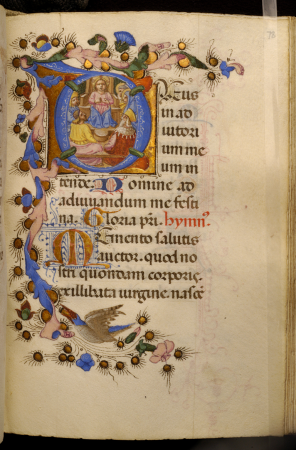 Deus
in ad
iutori
um me
um in
tende. Domine ad
adiuvandum me festi
na. Gloria pri. hymn.
Memento salutis
auctor. quod no
stri quondam corporis.
ex illibata virgine nasce